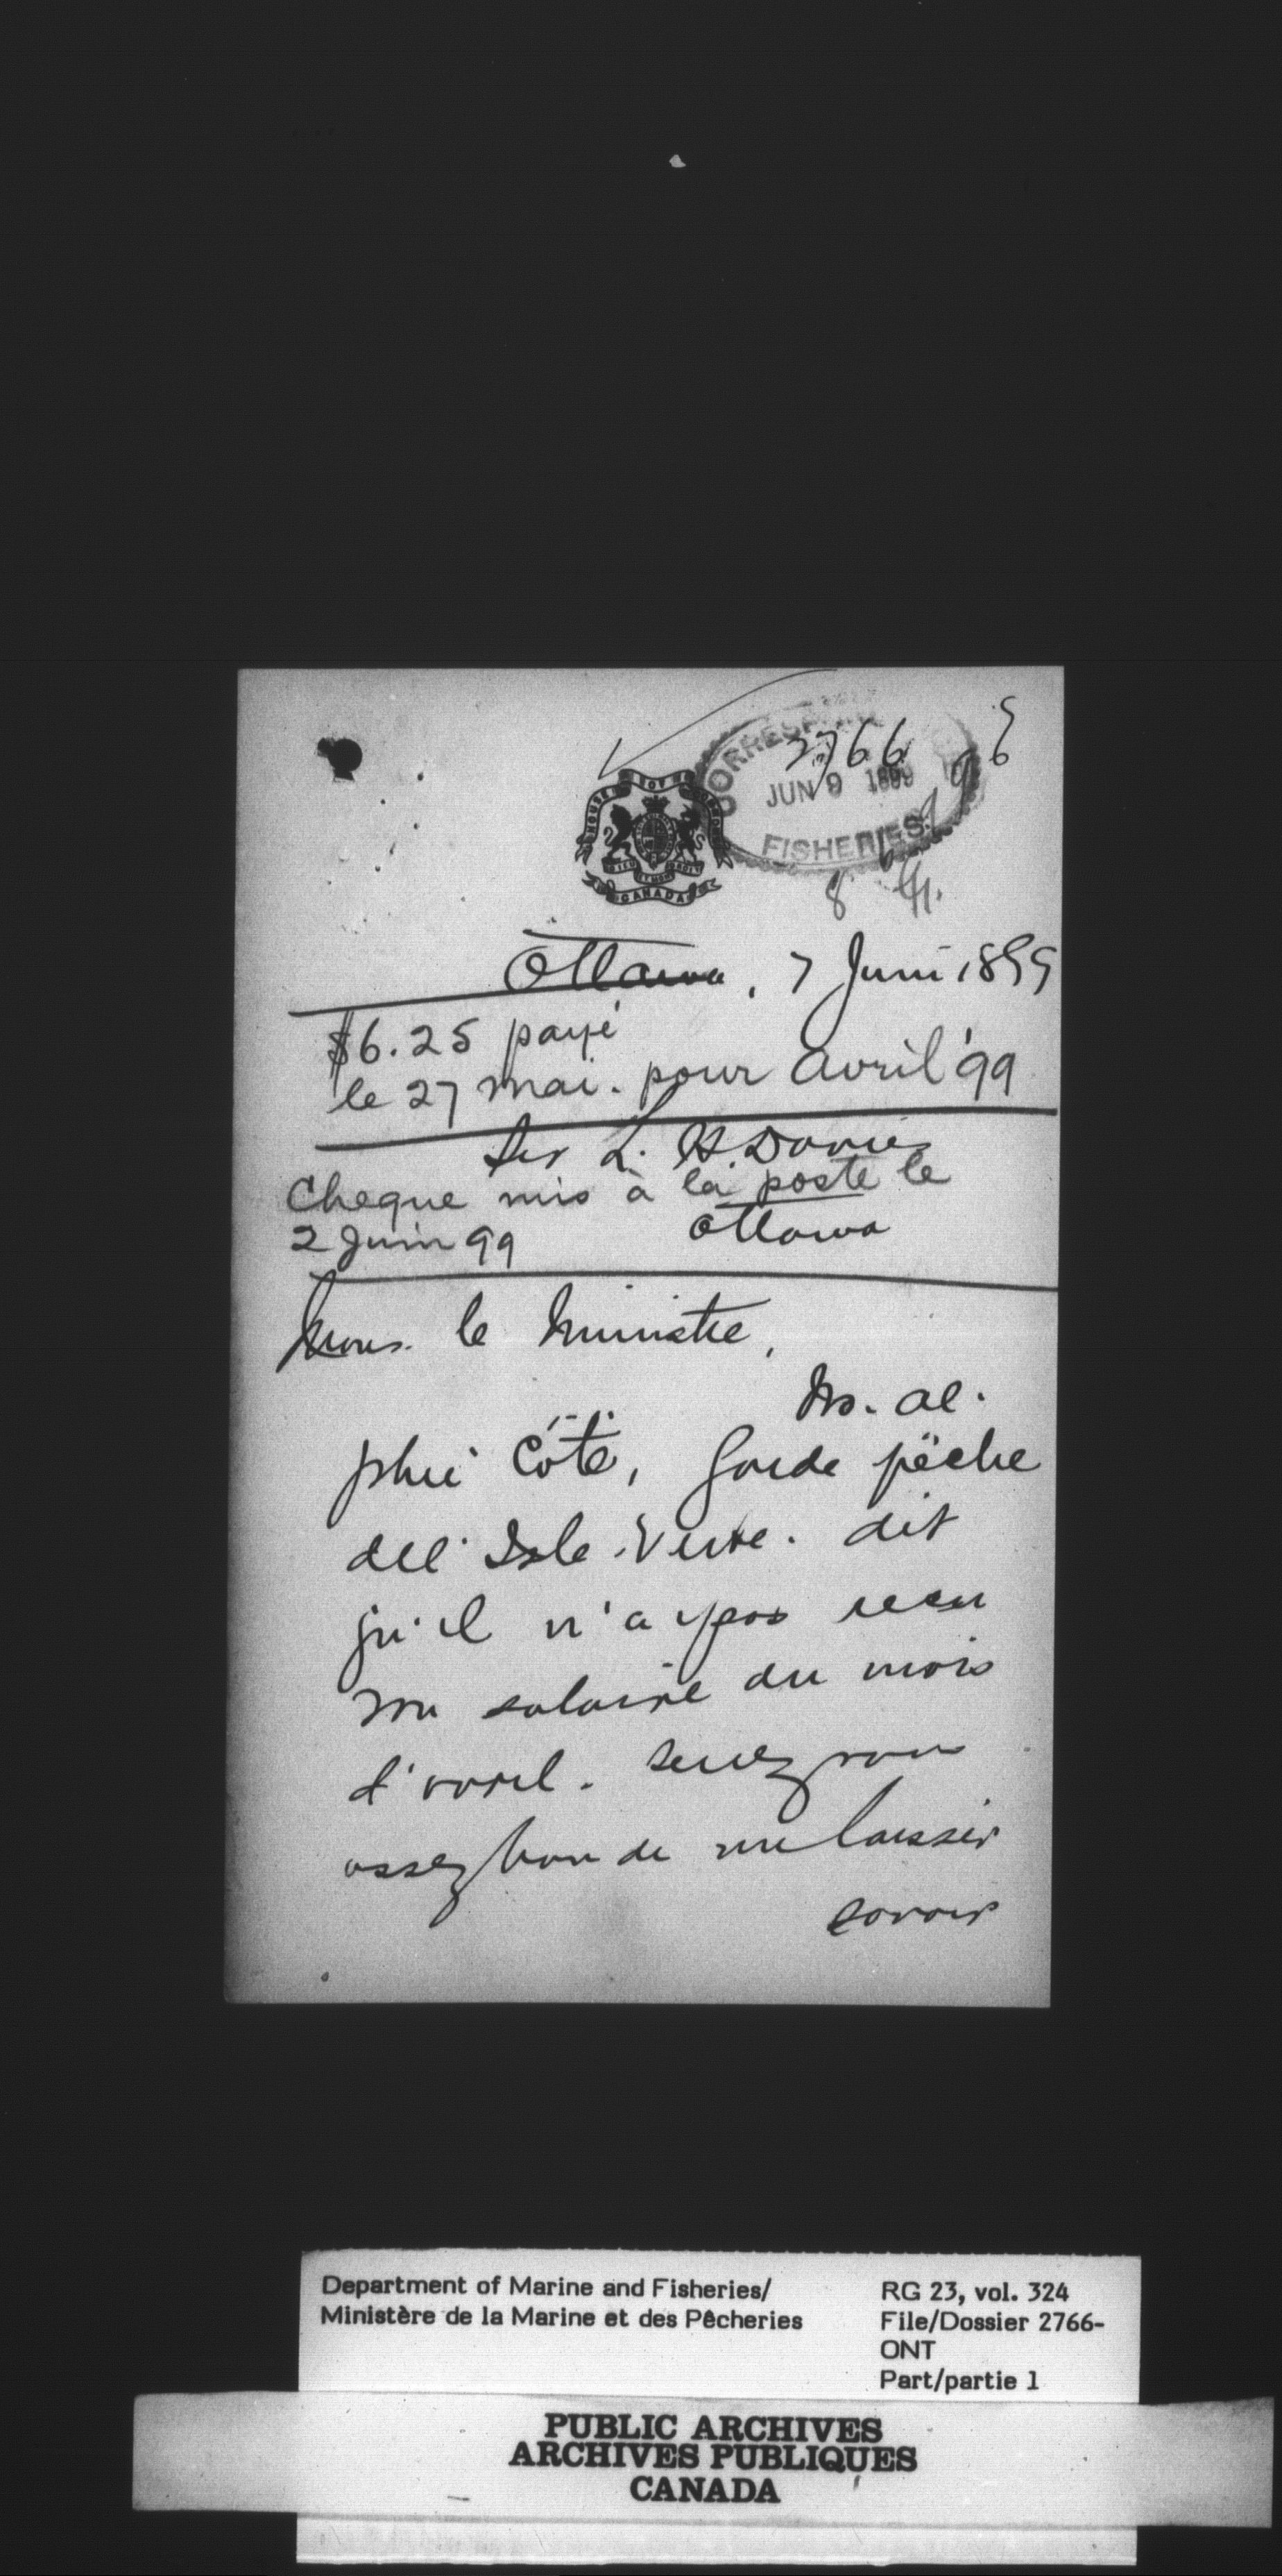 CORRESP
2766
JUN 9 1899
FISHERIES
HOUSE OF COMMONS
CANADA
Ottawa, 7 Juin 1899
$6.25 payé
le 27 mai. pour avril '99
Sir L. H. Davies
Cheque mis à la poste le
Ottawa
2 Juin 99
Mons. le Ministre,
M. Al.
phé Côté, Garde pêche
de l'Isle Verte. dit
qu'il n'a pas reçu
son salaire du mois
d'avril. Serez vous
assez bon de me laisser
savoir
Department of Marine and Fisheries/
Ministère de la Marine et des Pêcheries
RG 23, vol. 324
File/Dossier 2766-
ONT
Part/partie 1
PUBLIC ARCHIVES
ARCHIVES PUBLIQUES
CANADA